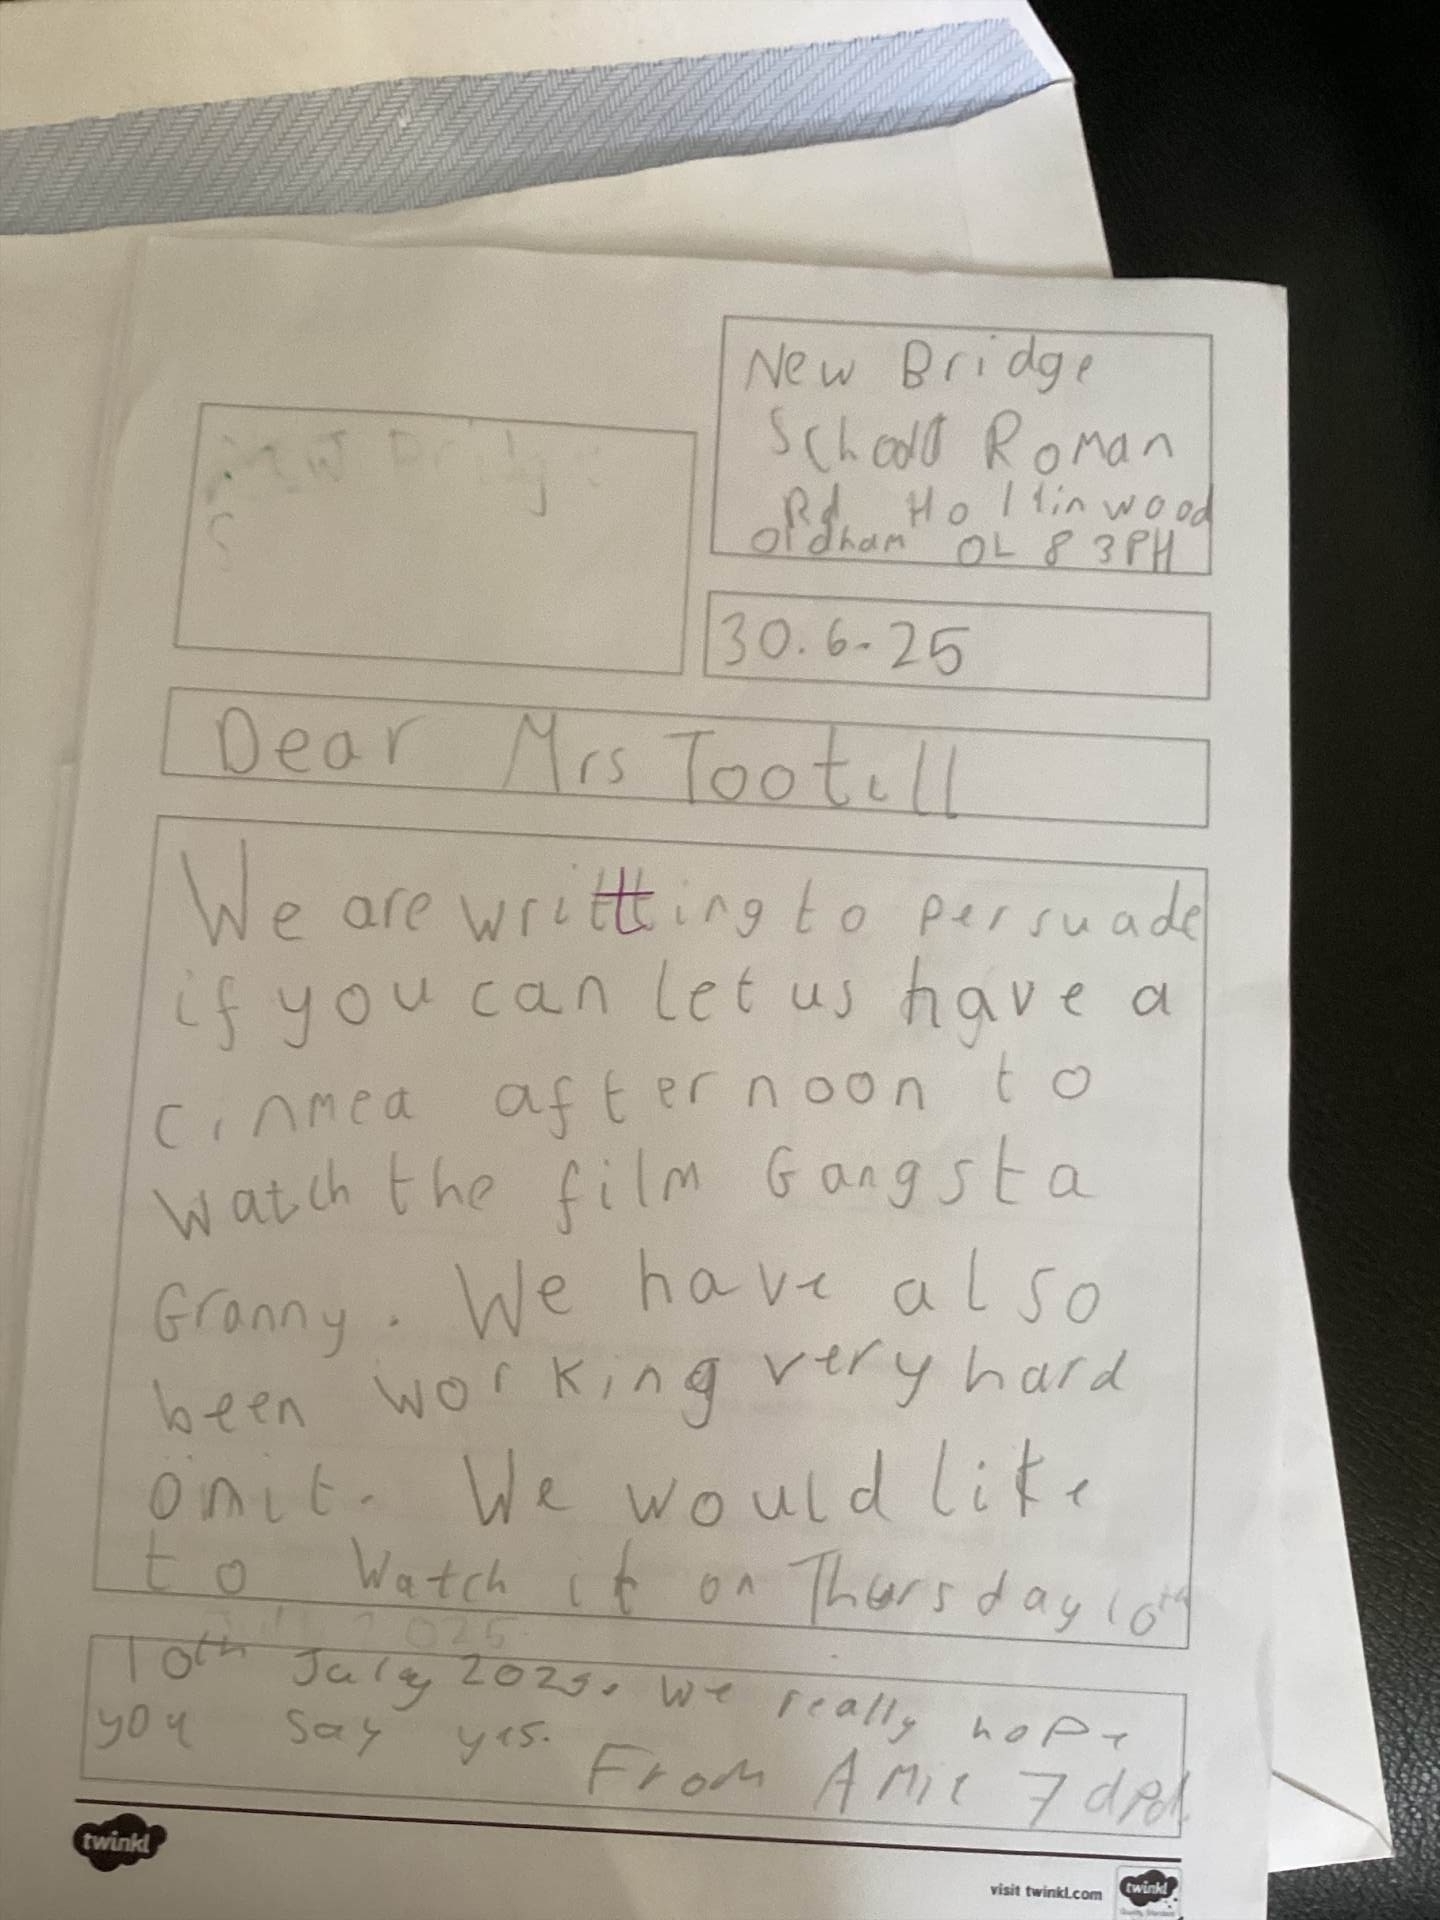 New Bridge
School Roman
Rd Hollinwood
Oldham OL8 3PH
New Bridge
S
30.6.25
Dear Mrs Tootill
We are writting to persuade
if you can let us have a
cinmea afternoon to
watch the film Gangsta
Granny. We have also
been working very hard
on it. We would like
to watch it on Thursday 10th
2025
10th July 2025. We really hope
you say yes.
From Amie 7
twinkl
visit twinkl.com
twinkl